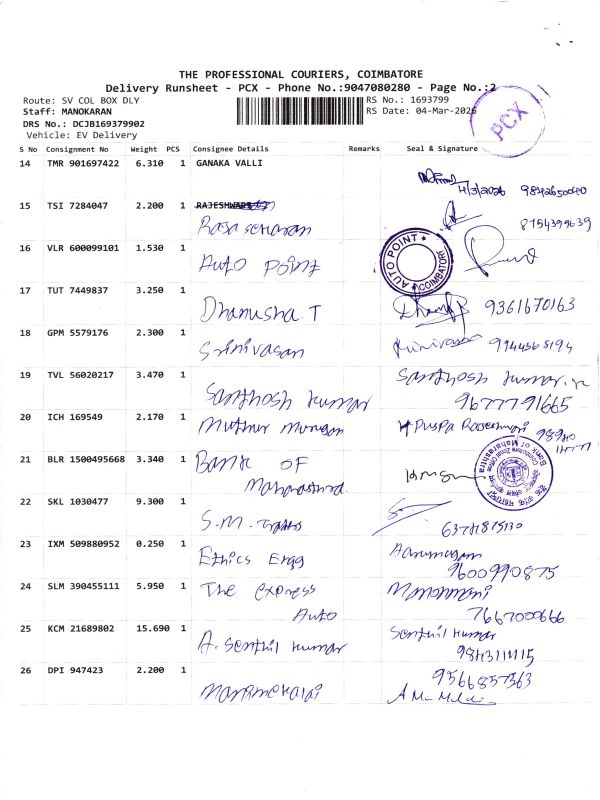 THE PROFESSIONAL COURIERS, COIMBATORE
Delivery Runsheet - PCX - Phone No.:9047080280 - Page No.:2
Route: SV COL BOX DLY
RS No.: 1693799
Staff: MANOKARAN
RS Date: 04-Mar-2026
DRS No.: DCJB169379902
Vehicle: EV Delivery
PCX
S No Consignment No Weight PCS Consignee Details Remarks Seal & Signature
14 TMR 901697422 6.310 1 GANAKA VALLI
4/3/2026 9842650040
15 TSI 7284047 2.200 1 RAJESHWARI
Rajasekaran 8754399639
16 VLR 600099101 1.530 1
Auto Point
AUTO POINT COIMBATORE
17 TUT 7449837 3.250 1
Dhanusha. T 9361670163
18 GPM 5579176 2.300 1
Srinivasan
19 TVL 56020217 3.470 1
Santhosh kumar Santhosh kumar
9677791665
20 ICH 169549 2.170 1
Muthu Murugan
21 BLR 1500495668 3.340 1
Bank OF
Maharashtra
Bank of Maharashtra
22 SKL 1030477 9.300 1
S.M.
23 IXM 509880952 0.250 1
Ethics Engg Aarumugam
9600990875
24 SLM 390455111 5.950 1
The express Manonmani
Auto 7667000666
25 KCM 21689802 15.690 1
A. Senthil kumar Senthil kumar
26 DPI 947423 2.200 1
Manimekalai 9566857563